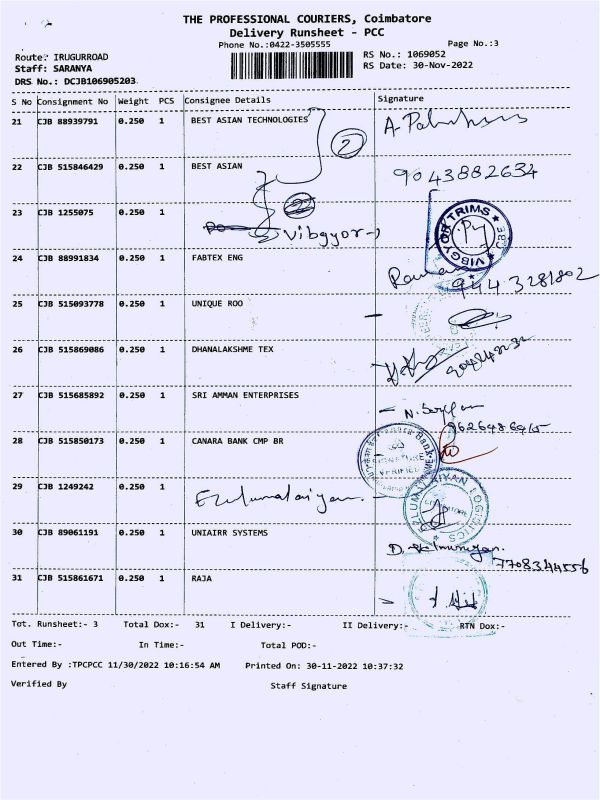 THE PROFESSIONAL COURIERS, Coimbatore
Delivery Runsheet - PCC
Phone No.:0422-3505555
Page No.:3
Route: IRUGURROAD
RS No.: 1069052
Staff: SARANYA
RS Date: 30-Nov-2022
DRS No.: DCJB106905203
S No Consignment No Weight PCS Consignee Details Signature
21 CJB 88939791 0.250 1 BEST ASIAN TECHNOLOGIES
2
22 CJB 515846429 0.250 1 BEST ASIAN 9043882634
23 CJB 1255075 0.250 1 Vibgyor
VIBGYOR TRIMS CBE
24 CJB 88991834 0.250 1 FABTEX ENG
9443281802
25 CJB 515093778 0.250 1 UNIQUE ROO
26 CJB 515869086 0.250 1 DHANALAKSHME TEX
27 CJB 515685892 0.250 1 SRI AMMAN ENTERPRISES
28 CJB 515850173 0.250 1 CANARA BANK CMP BR
SIGNATURE
VERIFIED
29 CJB 1249242 0.250 1 Ezhilumalaiyan
LOGISTICS
30 CJB 89061191 0.250 1 UNIAIRR SYSTEMS
7708344556
31 CJB 515861671 0.250 1 RAJA
Tot. Runsheet:- 3 Total Dox:- 31 I Delivery:- II Delivery:- RTN Dox:-
Out Time:- In Time:- Total POD:-
Entered By :TPCPCC 11/30/2022 10:16:54 AM Printed On: 30-11-2022 10:37:32
Verified By Staff Signature